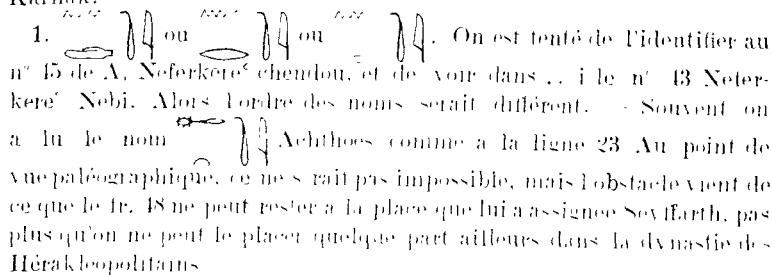 1. ou ou . On est tenté de l'identifier au
n° 45 de A, Neferkerec chendou, et de voir dans .. i le n° 43 Nefer-
kerec Nebi. Alors l'ordre des noms serait différent. - Souvent on
a lu le nom Achthoes comme a la ligne 23 Au point de
vue paléographique, ce ne s rait pas impossible, mais l'obstacle vient de
ce que le fr. 48 ne peut rester a la place que lui a assignee Seyffarth, pas
plus qu'on ne peut le placer quelque part ailleurs dans la dynastie des
Hérakleopolitains